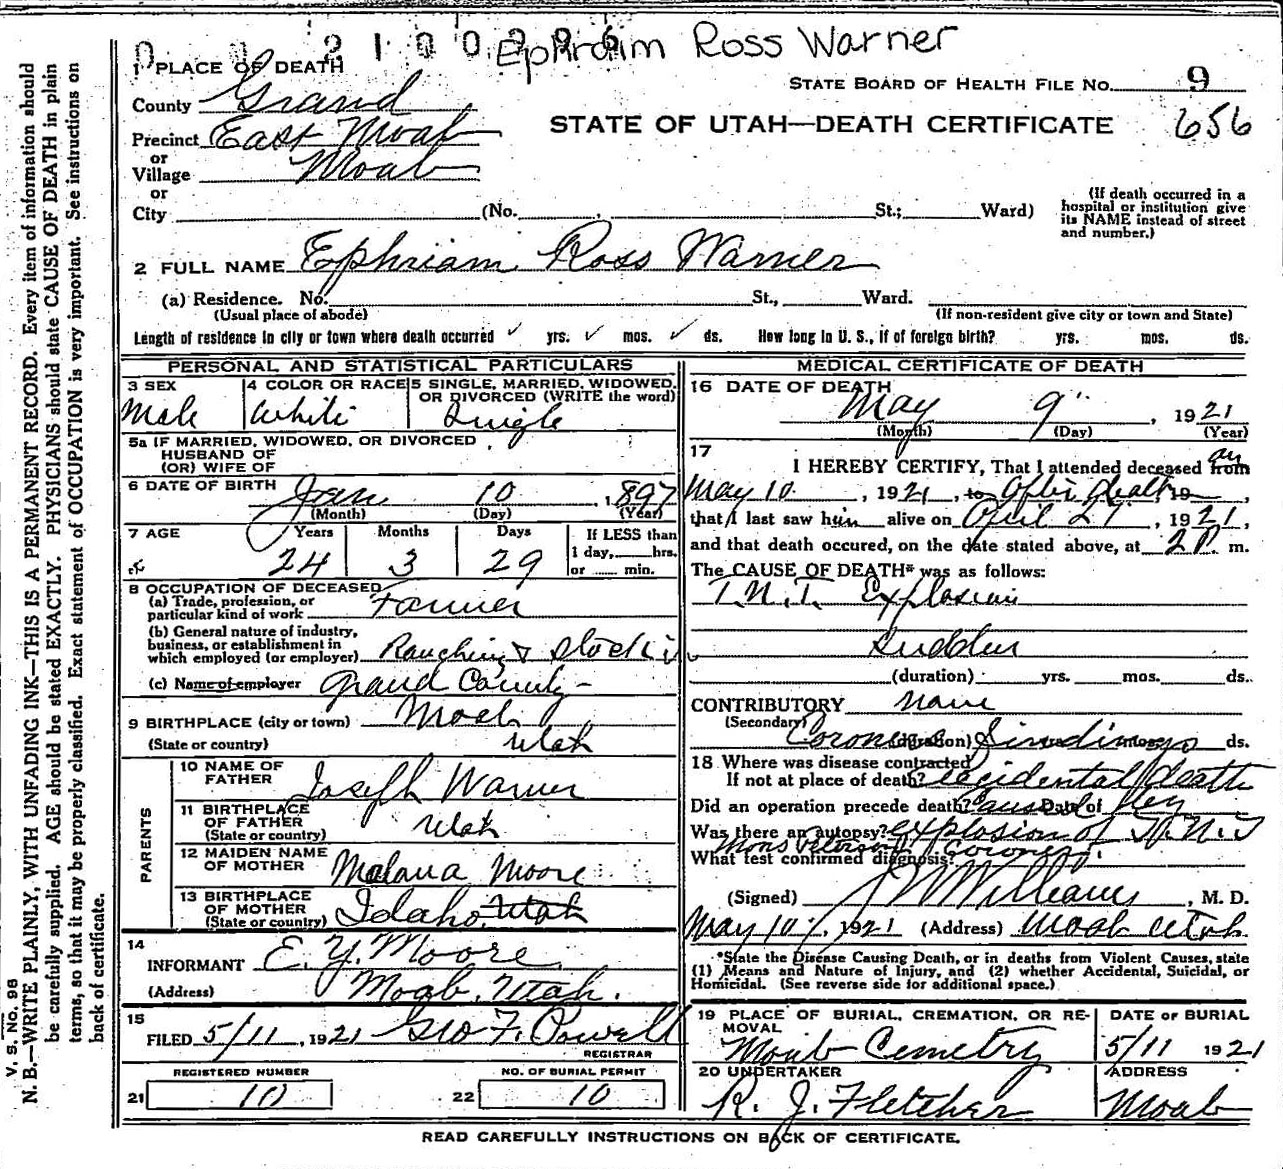 2100296 Ephraim Ross Warner
1 PLACE OF DEATH
STATE BOARD OF HEALTH FILE NO. 9
County Grand
STATE OF UTAH—DEATH CERTIFICATE 656
Precinct East Moab
or
Village Moab
or
City (No. , St.; Ward)
(If death occurred in a hospital or institution give its NAME instead of street and number.)
2 FULL NAME Ephriam Ross Warner
(a) Residence. No. St., Ward.
(Usual place of abode) (If non-resident give city or town and State)
Length of residence in city or town where death occurred ✓ yrs. ✓ mos. ✓ ds. How long in U. S., if of foreign birth? yrs. mos. ds.
PERSONAL AND STATISTICAL PARTICULARS
3 SEX
Male
4 COLOR OR RACE
White
5 SINGLE, MARRIED, WIDOWED, OR DIVORCED (WRITE the word)
Single
5a IF MARRIED, WIDOWED, OR DIVORCED
HUSBAND OF
(OR) WIFE OF
6 DATE OF BIRTH Jan 10, 1897
(Month) (Day) (Year)
7 AGE Years Months Days If LESS than
1 day, hrs.
24 3 29 or min.
8 OCCUPATION OF DECEASED
(a) Trade, profession, or
particular kind of work Farmer
(b) General nature of industry,
business, or establishment in
which employed (or employer) Ranching & Stock
(c) Name of employer Grand County
9 BIRTHPLACE (city or town) Moab
(State or country) Utah
PARENTS
10 NAME OF
FATHER Joseph Warner
11 BIRTHPLACE
OF FATHER Utah
(State or country)
12 MAIDEN NAME
OF MOTHER Malana Moore
13 BIRTHPLACE
OF MOTHER Idaho. Utah
(State or country)
14
INFORMANT E. Y. Moore
(Address) Moab, Utah.
15
FILED 5/11, 1921 Geo F. Powell
REGISTRAR
REGISTERED NUMBER NO. OF BURIAL PERMIT
21 10 22 10
MEDICAL CERTIFICATE OF DEATH
16 DATE OF DEATH
May 9", 1921
(Month) (Day) (Year)
17
I HEREBY CERTIFY, That I attended deceased from
May 10, 1921, to after death 19
that I last saw him alive on April 27, 1921,
and that death occured, on the date stated above, at 2 P m.
The CAUSE OF DEATH* was as follows:
T.N.T. Explosion
Sudden
(duration) yrs. mos. ds.
CONTRIBUTORY none
(Secondary)
Coroners (duration) findings ds.
18 Where was disease contracted
If not at place of death? accidental death
Did an operation precede death? caused Date of by
Was there an autopsy? explosion of T.N.T
Mons Peterson Coroner.
What test confirmed diagnosis?
(Signed) J W Williams, M. D.
May 10, 1921 (Address) Moab Utah
*State the Disease Causing Death, or in deaths from Violent Causes, state
(1) Means and Nature of Injury, and (2) whether Accidental, Suicidal, or
Homicidal. (See reverse side for additional space.)
19 PLACE OF BURIAL, CREMATION, OR REMOVAL DATE OF BURIAL
Moab Cemetry 5/11 1921
20 UNDERTAKER ADDRESS
R. J. Fletcher Moab
READ CAREFULLY INSTRUCTIONS ON BACK OF CERTIFICATE.
V. S. No. 98
N. B.—WRITE PLAINLY, WITH UNFADING INK—THIS IS A PERMANENT RECORD. Every item of information should
be carefully supplied. AGE should be stated EXACTLY. PHYSICIANS should state CAUSE OF DEATH in plain
terms, so that it may be properly classified. Exact statement of OCCUPATION is very important. See instructions on
back of certificate.